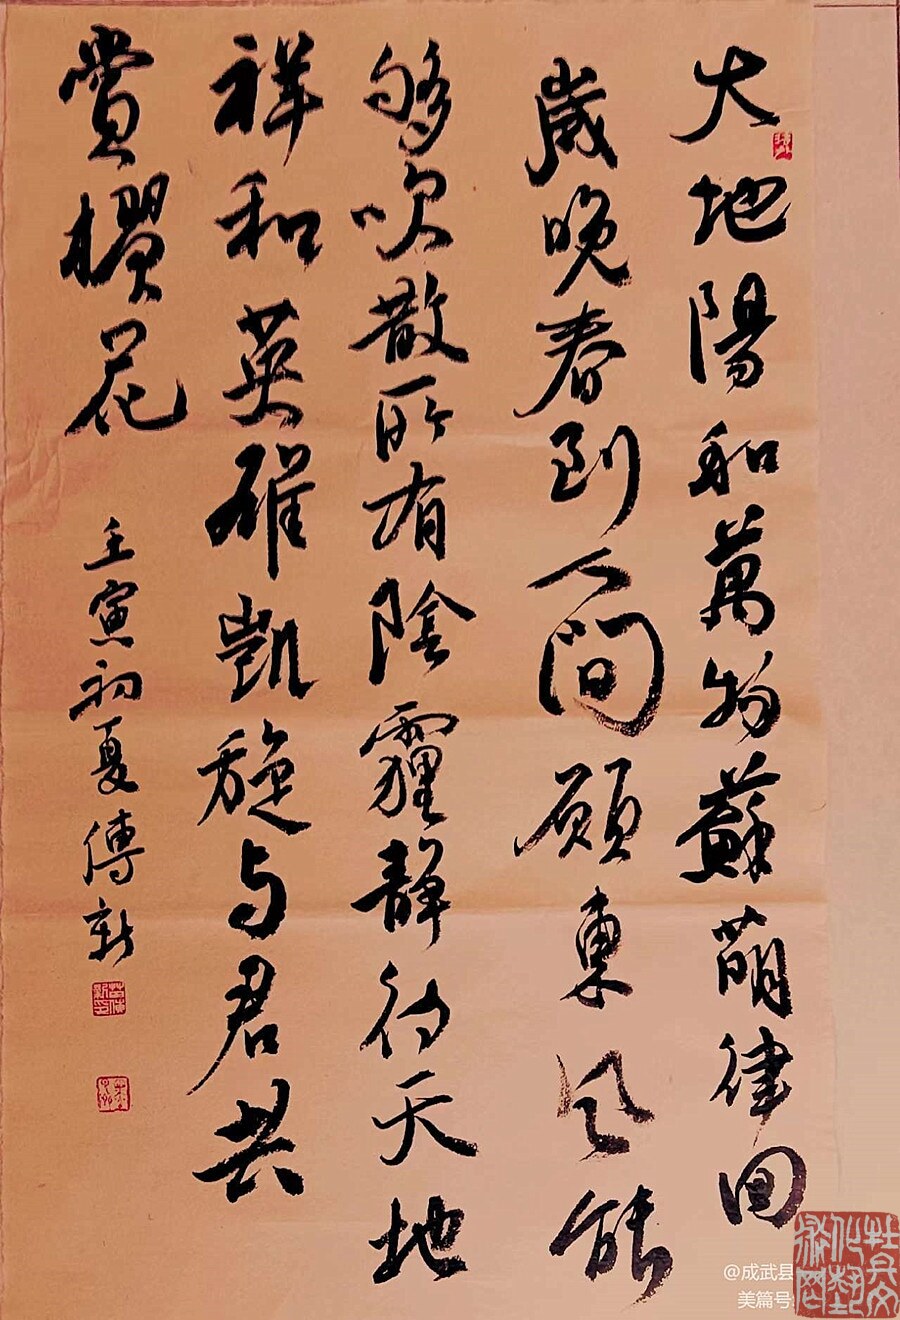 大地陽和萬物蘇萌律回
歲晚春到人間願東风能
够吹散所有陰霾静待天地
祥和英雄凱旋与君共
賞櫻花
壬寅初夏傳新
@成武县
美篇号